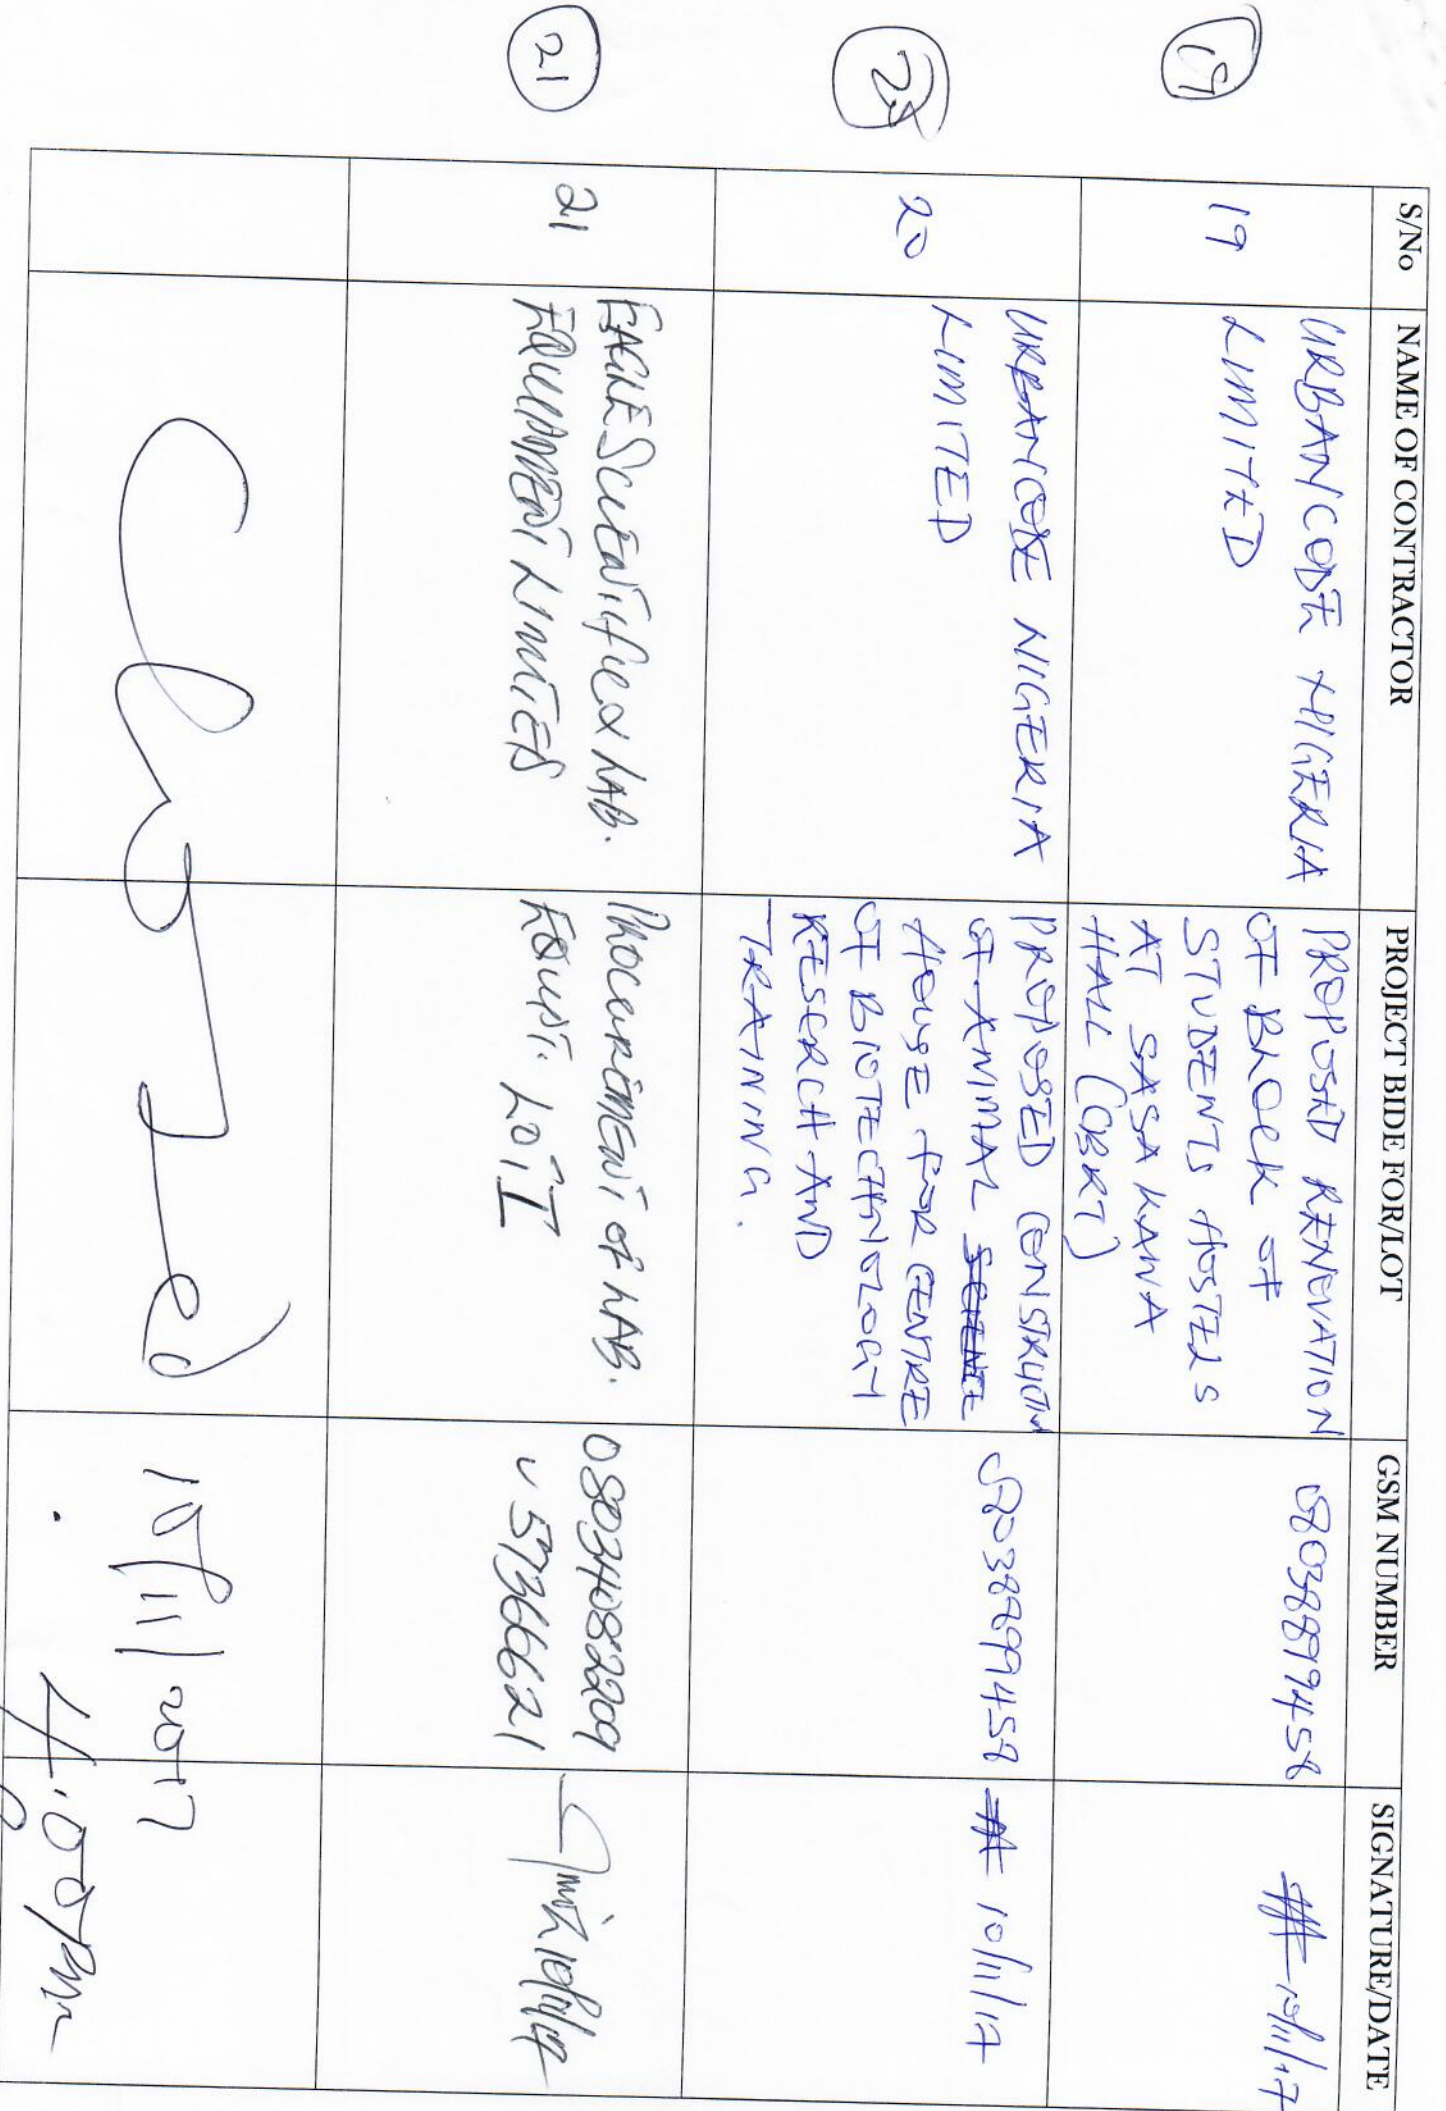 S/No NAME OF CONTRACTOR PROJECT BIDE FOR/LOT GSM NUMBER SIGNATURE/DATE
19
19
URBANCODE NIGERIA
LIMITED
PROPOSED RENOVATION
OF BLOCK OF
STUDENTS HOSTELS
AT SASAKAWA
HALL (CBRT)
08038899458
10/11/17
20
20
URBANCODE NIGERIA
LIMITED
PROPOSED CONSTRUCTN
OF ANIMAL SCIENCE
HOUSE FOR CENTRE
OF BIOTECHNOLOGY
RESERCH AND
TRAINING.
08038899458
10/11/17
21
21
EAGLE Scientific & LAB.
EQUIPMENT LIMITED
Procurement of LAB.
EQUIPT. LOT I
08034082209
" 5736621
10/11/17
Closed
10/11/2017
4:00pm